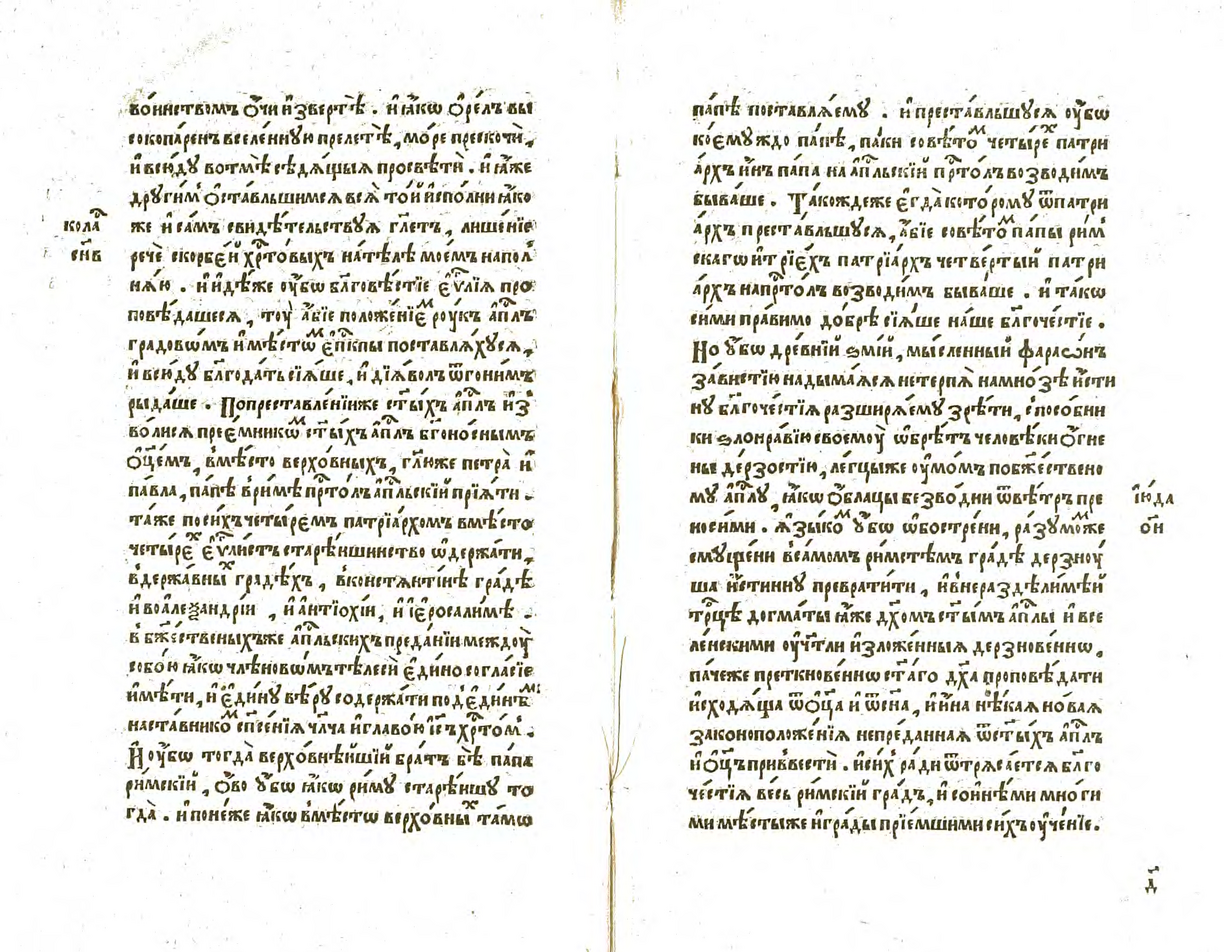 во́инствомъ ѻ҆́чи и҆зверѣ̀ . и҆ ꙗ҆́кѡ ѻ҆ре́лъ вы
сокопа́ренъ вселе́нную прелетѣ̀, мо́ре прескочѝ,
и҆ всю́дꙋ во тмѣ̀ сѣдѧ́щыѧ просвѣтѝ . и҆ ꙗ҆́же
дрꙋги́м ѻ҆ста́вльшимсѧ всѧ̀ то́й и҆спо́лни ꙗ҆ко
кола
же и҆ са́мъ свидѣ́тельствꙋѧ гл҃етъ, лише́нїе
сн҃в
речѐ скорбе́й хрⷭ҇то́выхъ на тѣ́лѣ мое́мъ напол
нѧ́ю . и҆ и҆дѣ́же ᲂу҆́бѡ бл҃говѣ́стїе є҆ѵⷢ҇лїѧ про
повѣ́дашесѧ, тоу̀ а҆́бїе положе́нїеⷨ роу́къ а҆пⷭ҇лъ
градовѡ́мъ и҆ мѣ́стѡⷨ є҆пкⷭ҇пы поставлѧ́хꙋсѧ,
и҆ всю́дꙋ бл҃года́ть сїѧ́ше, и҆ дїѧ́волъ ѿгони́мъ
рыда́ше . По преставле́нїи же ст҃ы́хъ а҆пⷭ҇лъ и҆з̾
во́лисѧ прее́мникѡⷨ ст҃ы́хъ а҆пⷭ҇лъ бг҃оно́снымъ
ѻ҆ц҃е́мъ, вмѣ́сто верхо́вныхъ, гл҃ю же петра̀ и҆
па́вла, па́пѣ в ри́мѣ прⷭ҇то́лъ а҆пⷭ҇льскїй прїѧ́ти .
та́же по си́хъ четы́рем патрїа́рхомъ вмѣ́сто
четы́реⷯ є҆ѵⷢ҇ли́стъ старѣ́ишинство ѡ҆держа́ти,
в держа́вныⷯ гра́дѣхъ, в костѧнти́нѣ гра́дѣ
и҆ во а҆леѯа́ндрїи , и҆ а҆нтїохі́и, и҆ і҆єросали́мѣ .
в бж҃е́ственыхъ же а҆пⷭ҇льскихъ преда́нїи междоу̀
собо́ю ꙗ҆́кѡ чле́новѡмъ тѣлесѝ є҆ди́но согла́сїе
и҆мѣ́ти, и҆ є҆ди́нꙋ вѣ́рꙋ содержа́ти под є҆ди́нѣⷨ
наста́вникоⷨ сп҃се́нїѧ чл҃ча и҆ главо́ю і҆с҃ъ хрⷭ҇то́м .
И҆ ᲂу҆́бѡ тогда̀ верхо́внѣйшїй бра́тъ бѣ̀ па́па
ри́мскїй, ѻ҆́во ᲂу҆́бѡ ꙗ҆́кѡ ри́мꙋ старѣ́ишꙋ то
гда̀ . и҆ поне́же ꙗ҆́кѡ вмѣ́стѡ верхо́вныⷯ та́мѡ
па́пѣ поставлѧ́емꙋ . и҆ преста́вльшꙋсѧ ᲂу҆́бѡ
кое́мꙋждо па́пѣ, па́ки совѣ́тоⷨ четы́реⷯ патри
а́рхъ и҆́нъ па́па на а҆пⷭ҇льскїй прⷭ҇то́лъ возводи́мъ
быва́ше . Та́кождеже є҆гда̀ кото́ромꙋ ѿ патри
а́рхъ преста́вльшꙋсѧ, а҆́бїе совѣ́тоⷨ па́пы рим
скагѡ и҆ трїе́хъ патрїа́рхъ четве́ртый патри
а́рхъ на прⷭ҇то́лъ возводи́мъ быва́ше . и҆ та́кѡ
си́ми пра́вимо до́брѣ сїѧ́ше на́ше бл҃гоче́стїе .
Но ᲂу҆́бѡ дре́внїй ѕмі́й, мы́сленный фараѡ́нъ
за́вистїю надыма́ѧсѧ не терпѧ̀ на мно́зѣ и҆́сти
нꙋ бл҃гоче́стїѧ разширѧ́емꙋ зрѣ́ти, спосо́бни
ки ѕлонра́вїю своемоу̀ ѡ҆брѣ́тъ человѣ́ки ѻ҆гне
ны де́рзостїю, ле́гцы же ᲂу҆мо́мъ по бж҃е́ствено
мꙋ а҆пⷭ҇лꙋ, ꙗ҆́кѡ ѻ҆́блацы безво́дни ѿ вѣ́тръ пре
і҆ю́да
носи́ми . ѧ҆зы́коⷨ ᲂу҆́бѡ ѡ҆бостре́ни, ра́зꙋмоⷨже
ѻ҃н
емꙋще́ни в са́момъ ри́мстѣмъ гра́дѣ дерзноу́
ша и҆́стиннꙋ преврати́ти, и҆ в нераздѣли́мѣй
трⷪ҇цѣ догма́ты ꙗ҆́же дх҃омъ ст҃ы́мъ а҆пⷭ҇лы и҆ все
ле́нскими ᲂу҆чт҃ли и҆зложе́нныѧ дерзнове́ннѡ,
па́чеже преткнове́ннѡ ст҃а́го дх҃а проповѣ́дати
и҆сходѧ́ща ѿ ѻ҆ц҃а и҆ ѿ сн҃а, и҆ и҆́на нѣ́каѧ но́ваѧ
законоположе́нїѧ непреда́ннаѧ ѿ ст҃ы́хъ а҆пⷭ҇лъ
и҆ ѻ҆ц҃ъ привве́сти . и҆ си́х ра́ди ѿтрѧса́етсѧ бл҃го
че́стїѧ ве́сь ри́мскїй гра́дъ, и҆ со и҆нѣ́ми мно́ги
ми мѣ́сты же и҆ гра́ды прїе́мшими си́хъ ᲂу҆че́нїе .
д҃